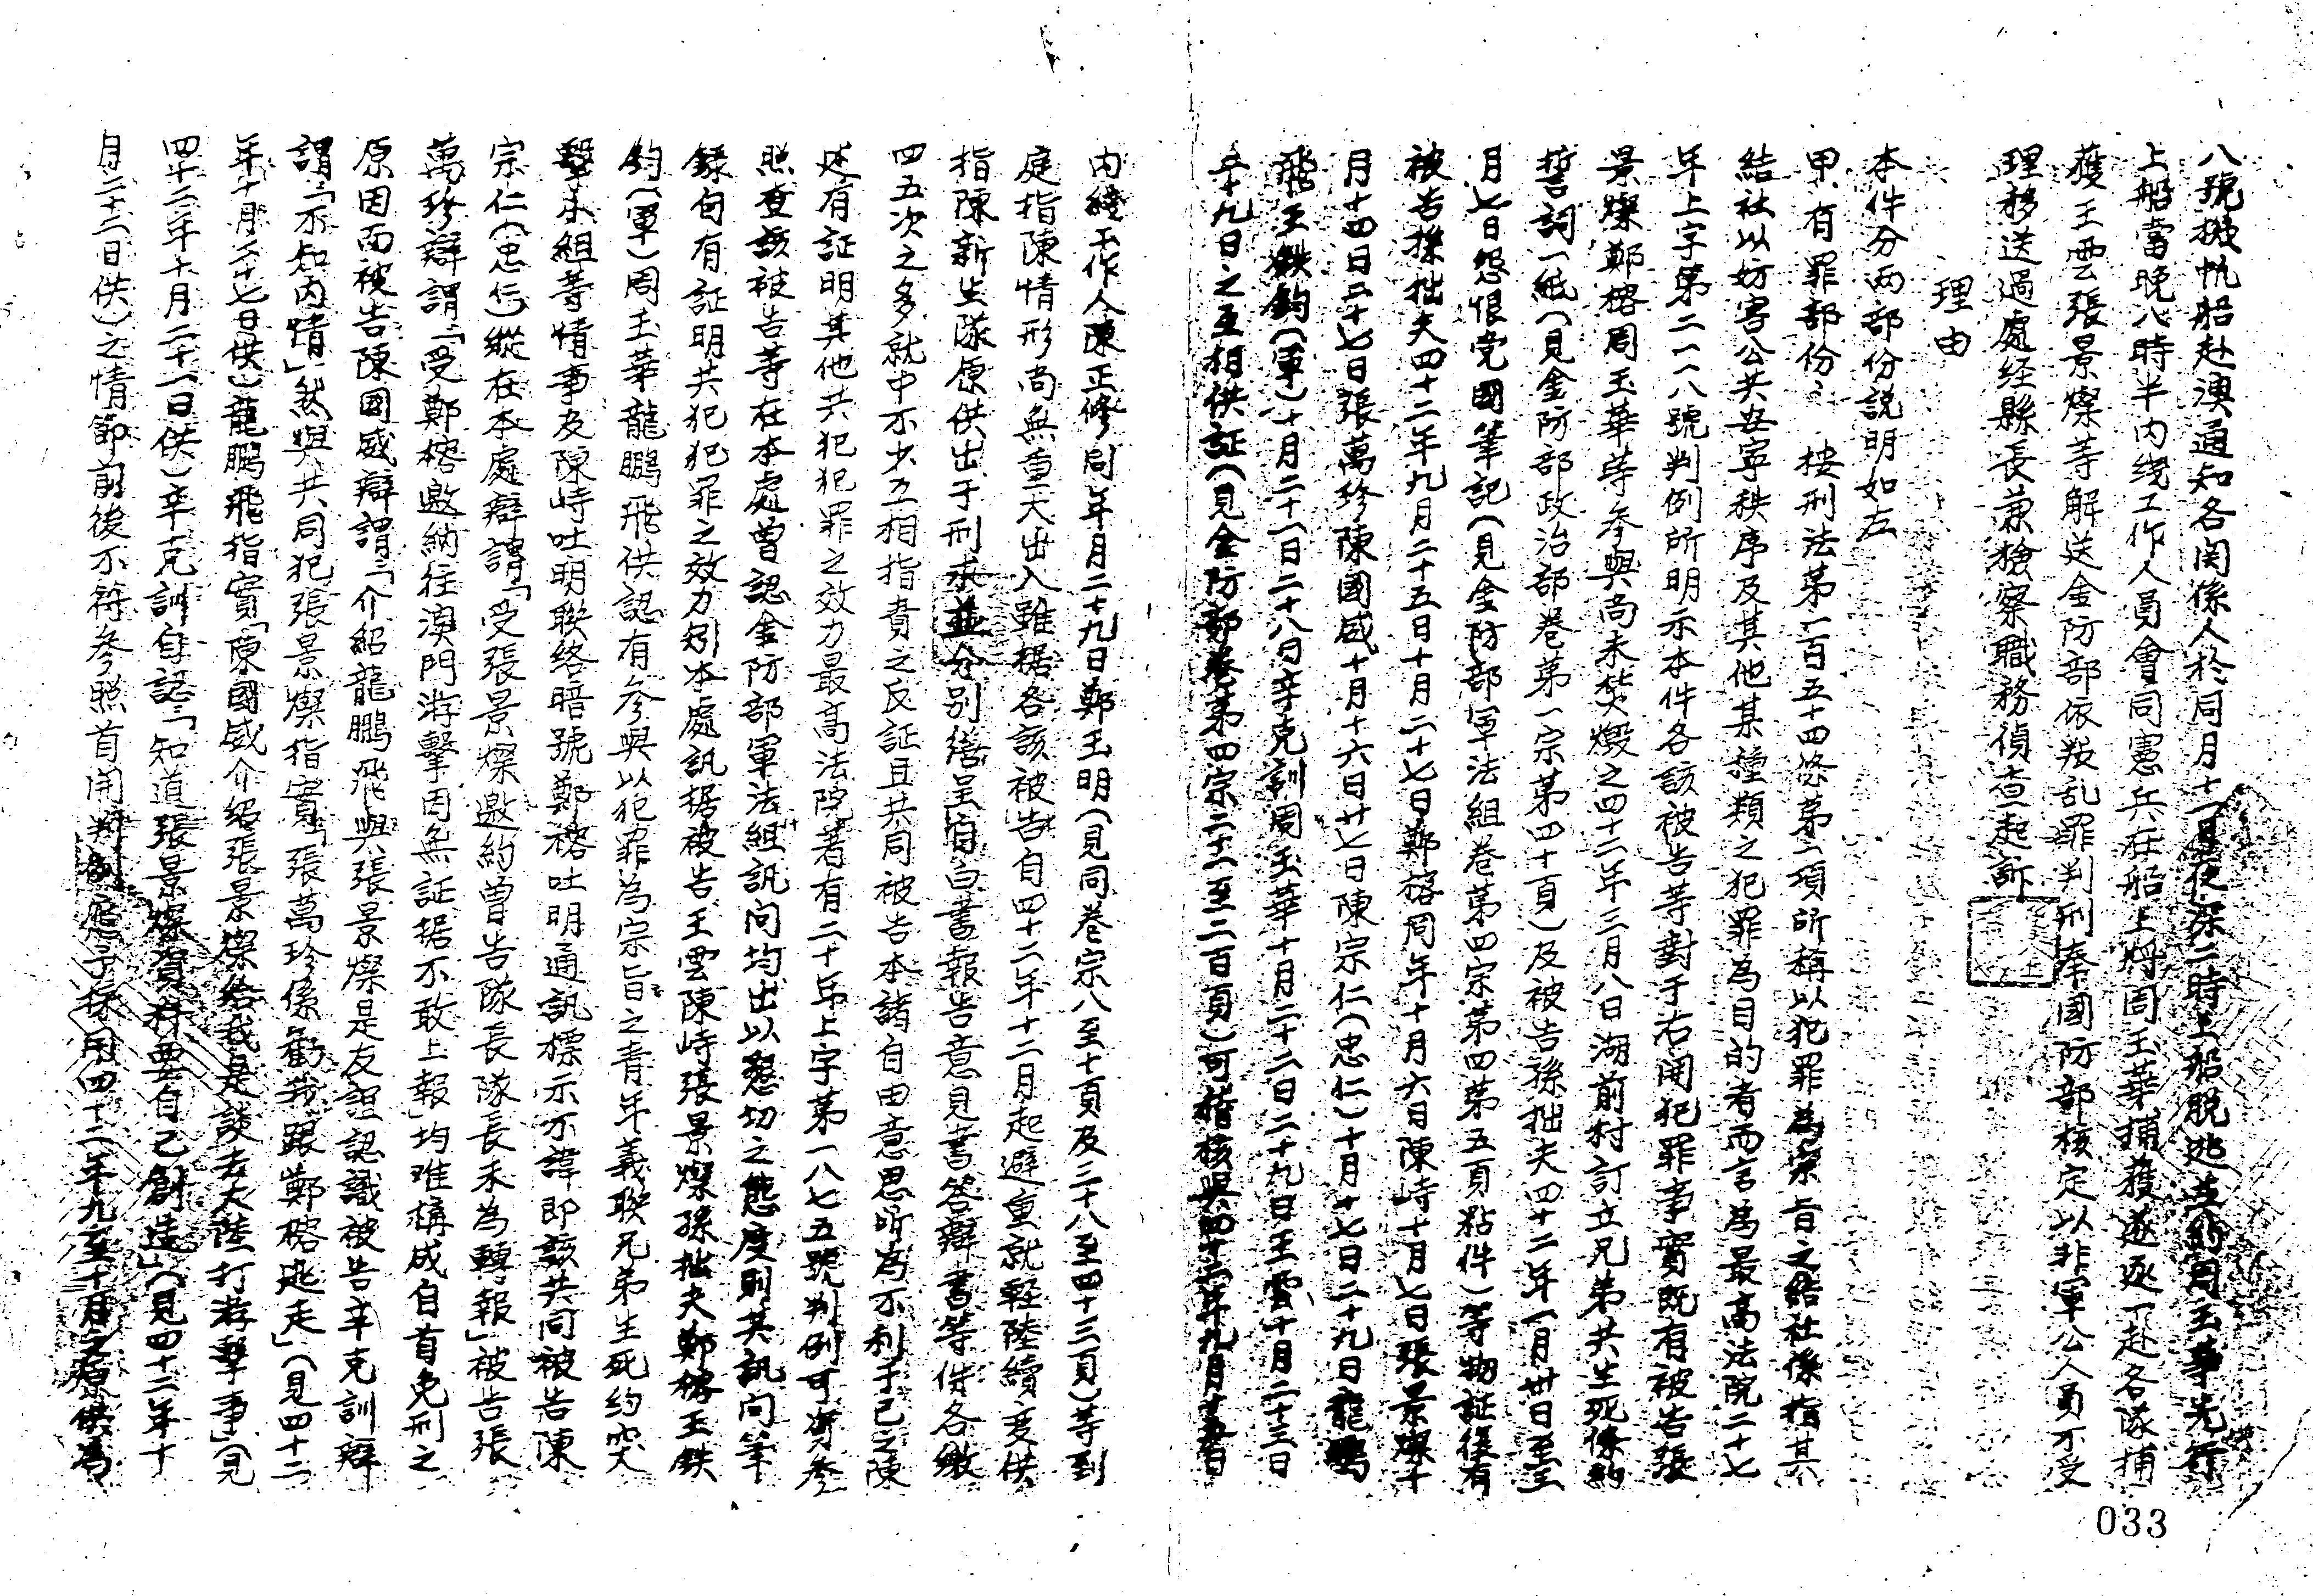 八號機帆船赴澳通知各関係人於同月十一日夜深二時上船脱逃並約周玉華先行
上船當晚八時半内线工作人員會同憲兵在船上将周玉華捕獲遂逐一赴各隊捕
獲王雲張景燦等解送金防部依叛乱罪判刑奉國防部核定以非軍公人員不受
理移送過處经縣長兼檢察職務偵查起訴
理由
本件分两部份説明如左
甲、有罪部份：按刑法第一百五十四條第一項所稱以犯罪為宗旨之結社係指其
結社以妨害公共安寧秩序及其他某種類之犯罪為目的者而言為最高法院二十七
年上字第二一一八號判例所明示本件各該被告等對于右開犯罪事實既有被告張
景燦鄭榕周玉華等参與尚未焚燬之四十二年三月八日湖前村訂立兄弟共生死條約
誓詞一紙（見金防部政治部卷第一宗第四十頁）及被告孫拙夫四十二年一月卅日至五
月七日怨恨党國筆記（見金防部軍法組卷第四宗第四第五頁黏件）等物証復有
被告孫拙夫四十二年九月二十五日十月二十七日鄭榕同年十月六日陳峙十月七日張景燦十
月十四日二十七日張萬珍陳國威十月十六日廿七日陳宗仁（忠仁）十月十七日二十九日龍鵬
飛王鉄鈞（軍）十月二十一日二十八日辛克訓周玉華十月二十二日二十九日王雲十月二十三日
二十九日之互相供証（見金防部卷第四宗二十一至二百頁）可稽核與四十二年九月
内綫工作人陳正修同年月二十九日鄭玉明（見同卷宗八至十頁及三十八至四十三頁）等到
庭指陳情形尚無重大出入雖据各該被告自四十二年十二月起避重就軽陸續变供
指陳新生隊原供出于刑求並分别繕呈自白書報告意見書答辯書等件各繳
四五次之多就中不少互相指責之反証且共同被告本諸自由意思所為不利于己之陳
述有証明其他共犯犯罪之效力最高法院著有二十年上字第一八七五號判例可資參
照查該被告等在本處曾認金防部軍法組訊问均出以懇切之態度則其訊问筆
錄自有証明共犯犯罪之效力矧本處訊据被告王雲陳峙張景燦孫拙夫鄭榕王鉄
鈞（軍）周玉華龍鵬飛供認有参與以犯罪為宗旨之青年義联兄弟生死約突
擊小組等情事及陳峙吐明联络暗號鄭榕吐明通訊標示不諱即該共同被告陳
宗仁（忠仁）縱在本處辯謂「受張景燦邀約曾告隊長隊長未為轉報」被告張
萬珍辯謂「受鄭榕邀納往澳門游擊因無証据不敢上報」均难構成自首免刑之
原因而被告陳國威辯謂「介紹龍鵬飛與張景燦是友誼認識被告辛克訓辯
謂「不知内情」然與共同犯張景燦指實「張萬珍係勸我跟鄭榕逃走」（見四十二
年十月二十七日供）龍鵬飛指實「陳國威介绍張景燦给我是談去大陸打游擊事」（見
四十二年十月二十一日供）辛克訓自認「知道張景燦資料要自己創造」（見四十二年十
月二十二日供）之情節前後不符參照首開判例應予採用四十二年九至十月之原供為
033